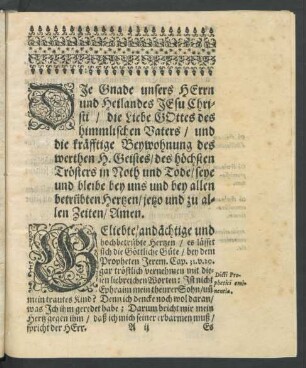 DIe Gnade unsers HErrn
und Heilandes JEsu Chri-
sti / die Liebe GOttes des
himmlischen Vaters / und
die kräfftige Beywohnung des
werthen H. Geistes / des höchsten
Trösters in Noth und Tode / seye
und bleibe bey uns und bey allen
betrübten Hertzen / jetzo und zu al-
len Zeiten / Amen.
GEliebte / andächtige und
hochbetrübte Hertzen / es lässet
sich die Göttliche Güte / bey dem
Propheten Jerem. Cap. 31. v. 20.
gar tröstlich vernehmen mit die-
sen liebreichen Worten: Ist nicht
Ephraim mein theurer Sohn / uñ
mein trautes Kind? Denn ich dencke noch wol daran /
was Ich ihm geredt habe: Darum bricht mir mein
Hertz gegen ihm / daß ich mich seiner erbarmen muß /
spricht der HErr.
Dicti Pro-
phetici emi-
nentia.
A ij Es